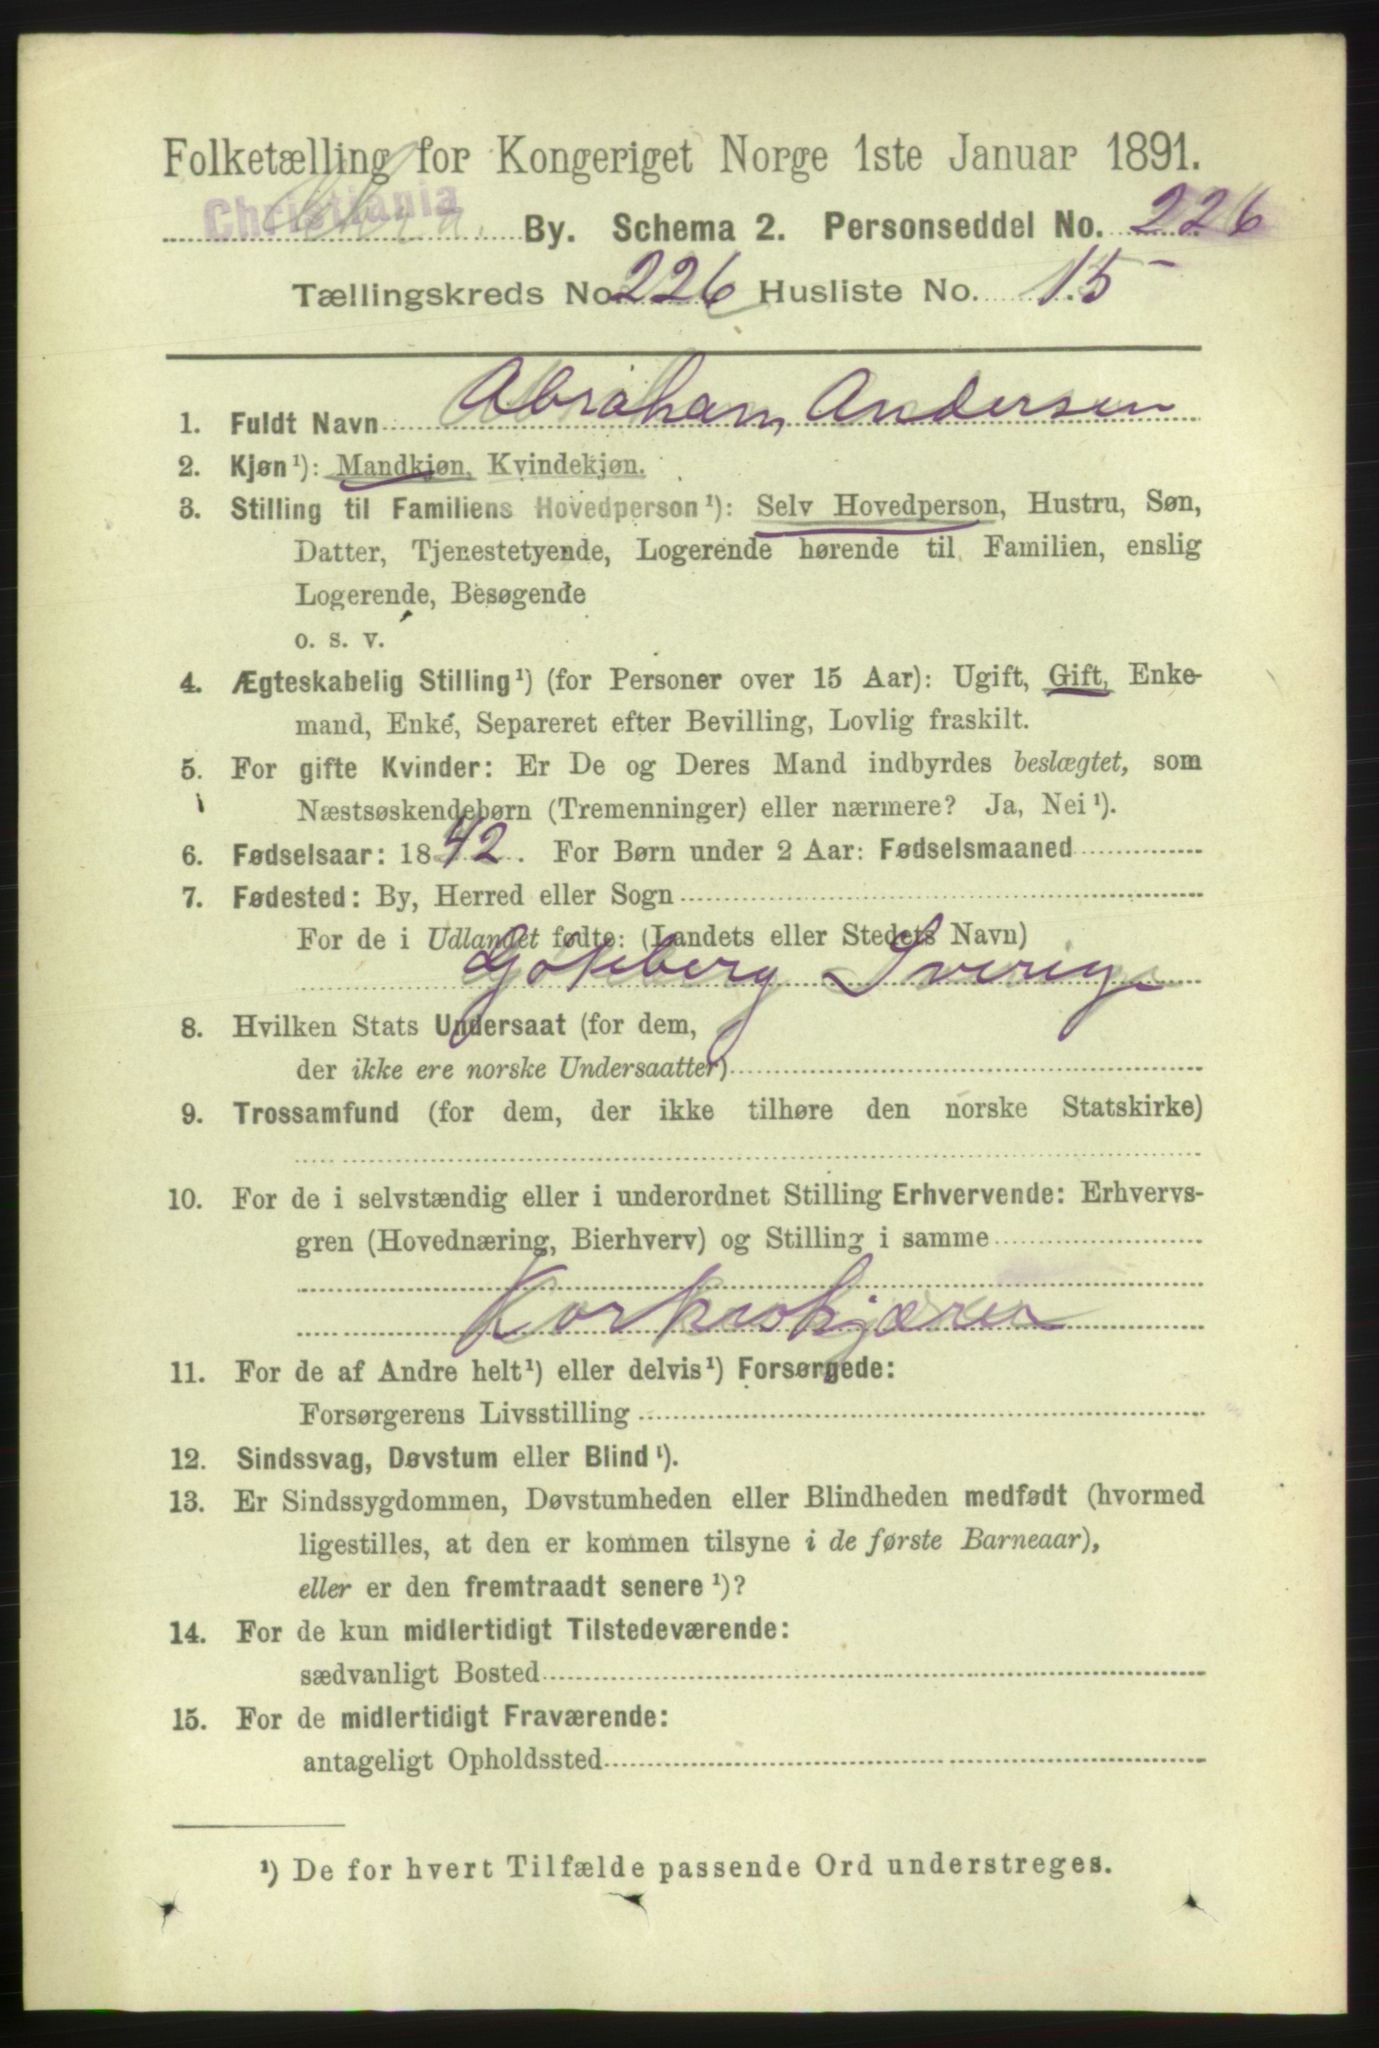 Folketælling for Kongeriget Norge 1ste Januar 1891.
Christiania By. Schema 2. Personseddel No. 226
Tællingskreds No. 226 Husliste No. 15
1. Fuldt Navn Abraham Andersen
2. Kjøn¹): Mandkjøn, Kvindekjøn.
3. Stilling til Familiens Hovedperson¹): Selv Hovedperson, Hustru, Søn,
Datter, Tjenestetyende, Logerende hørende til Familien, enslig
Logerende, Besøgende
o. s. v.
4. Ægteskabelig Stilling¹) (for Personer over 15 Aar): Ugift, Gift, Enke-
mand, Enke, Separeret efter Bevilling, Lovlig fraskilt.
5. For gifte Kvinder: Er De og Deres Mand indbyrdes beslægtet, som
Næstsøskendebørn (Tremenninger) eller nærmere? Ja, Nei¹).
6. Fødselsaar: 1842. For Børn under 2 Aar: Fødselsmaaned
7. Fødested: By, Herred eller Sogn
For de i Udlandet fødte: (Landets eller Stedets Navn)
Göteberg Sverige
8. Hvilken Stats Undersaat (for dem,
der ikke ere norske Undersaatter)
9. Trossamfund (for dem, der ikke tilhøre den norske Statskirke)
10. For de i selvstændig eller i underordnet Stilling Erhvervende: Erhvervs-
gren (Hovednæring, Bierhverv) og Stilling i samme
Korkeskjærer
11. For de af Andre helt¹) eller delvis¹) Forsørgede:
Forsørgerens Livsstilling
12. Sindssvag, Døvstum eller Blind¹).
13. Er Sindssygdommen, Døvstumheden eller Blindheden medfødt (hvormed
ligestilles, at den er kommen tilsyne i de første Barneaar),
eller er den fremtraadt senere¹)?
14. For de kun midlertidigt Tilstedeværende:
sædvanligt Bosted
15. For de midlertidigt Fraværende:
antageligt Opholdssted
¹) De for hvert Tilfælde passende Ord understreges.